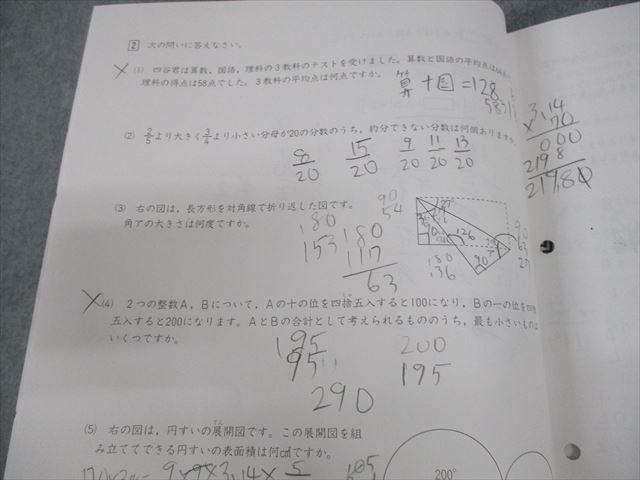 2 次の問いに答えなさい。
(1) 四谷君は算数,国語,理科の3教科のテストを受けました。算数と国語の平均点は64点
理科の得点は58点でした。3教科の平均点は何点ですか。
算+国=128
3.14
× 70
000
2198
219.80
(2) 2/5より大きく3/4より小さい分母が20の分数のうち,約分できない分数は何個ありますか。
8/20 15/20 9/20 11/20 13/20
(3) 右の図は,長方形を対角線で折り返した図です。
角アの大きさは何度ですか。
90
54
180
153
180
117
63
126
90
180
136
90
63
27
(4) 2つの整数A,Bについて,Aの十の位を四捨五入すると100になり,Bの一の位を四捨
五入すると200になります。AとBの合計として考えられるもののうち,最も小さいものは
いくつですか。
195
95
200
195
290
(5) 右の図は,円すいの展開図です。この展開図を組
み立ててできる円すいの表面積は何c㎡ですか。
9×9×3.14×
200°